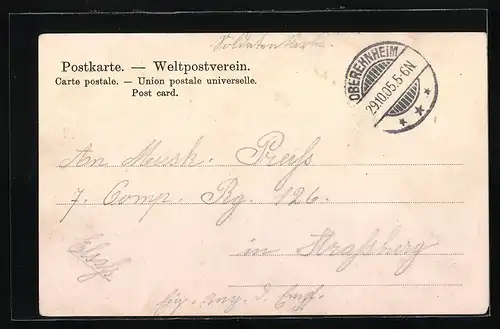 Soldatenkarte
Postkarte. — Weltpostverein.
Carte postale. — Union postale universelle.
Post card.
OBEREHNHEIM
29.10.05.5-6N.
An Musk. Preuss
7. Comp. Rg. 126.
in Strassburg
Elsass
Eig. Ang. d. Empf.